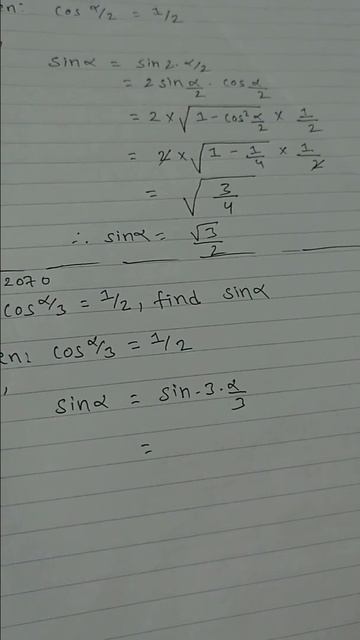 en: cos α/2 = 1/2
sinα = sin 2. α/2
= 2 sin α/2 . cos α/2
= 2 × √(1 - cos² α/2) × 1/2
= 2 × √(1 - 1/4) × 1/2
= √(3/4)
∴ sinα = √3/2
2070
cos α/3 = 1/2, find sinα
en: cos α/3 = 1/2
,
sinα = sin - 3. α/3
=